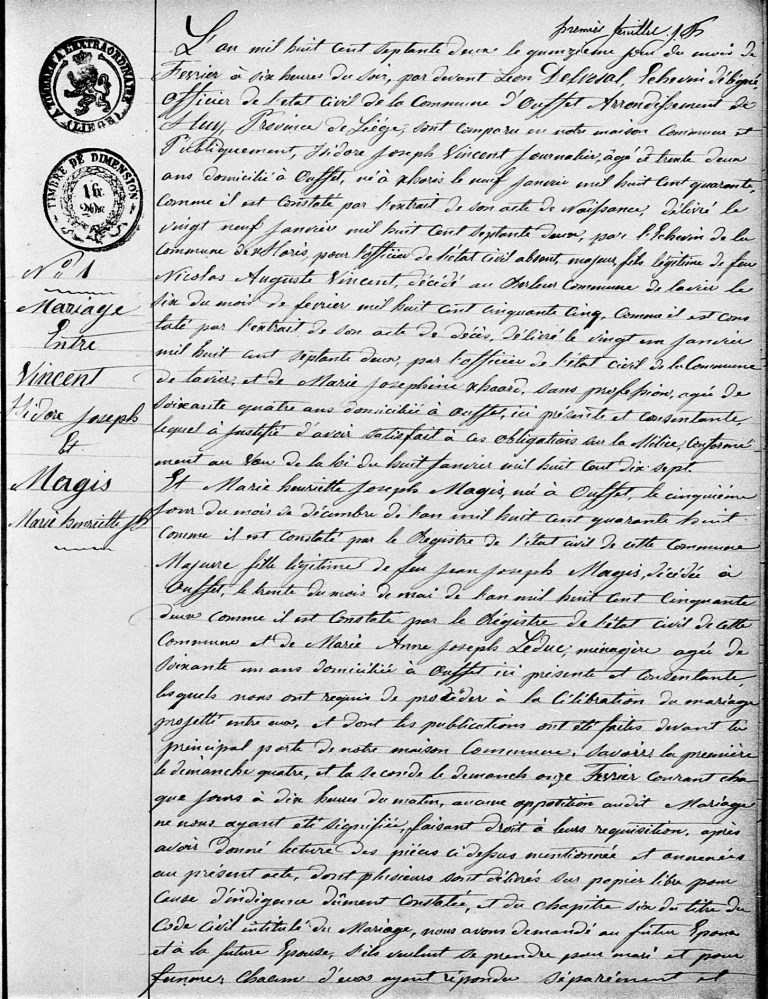 premier feuillet
A L'EXTRAORDINAIRE
(LIEGE)
TIMBRE DE DIMENSION
N° 1
Mariage
Entre
Vincent
Isidore Joseph
Et
Magis
Marie henriette Jh
L'an mil huit cent septante deux le quinzième jour du mois de
Fevrier à six heures du soir, par devant Léon Delvaal, Echevin délégué,
officier de l'état civil de la Commune d'Ouffet Arrondissement de
Huy, Province de Liége, sont comparu en notre maison Commune et
Publiquement, Isidore Joseph Vincent Journalier, agé de trente deux
ans domicilié à Ouffet, né à xhoris le neuf janvier mil huit cent quarante,
comme il est Constaté par l'extrait de son acte de Naissance, délivré le
vingt neuf janvier mil huit cent septante deux, par l'Echevin de la
Commune de xhoris, pour l'officier de l'état civil absent, majeur, fils légitime de feu
Nicolas Auguste Vincent, décédé au Commune de lavoir le
six du mois de fevrier mil huit cent cinquante cinq, Comme il est cons
taté par l'extrait de son acte de décès, délivré le vingt un janvier
mil huit cent septante deux, par l'officier de l'état civil de la Commune
de lavoir, et de Marie Josephine xhaard, sans profession, agée de
Soixante quatre ans domiciliée à Ouffet, ici présente et consentante,
lequel à justifié d'avoir satisfait à ces obligations sur la Milice, Conformé-
ment au Vou de la loi du huit Janvier mil huit cent dix sept.
Et Marie henriette Joseph Magis, née à Ouffet, le cinquième
jour du mois de décembre de l'an mil huit cent quarante huit
comme il est Constaté par le Registre de l'état civil de cette Commune
Majeure fille légitime de feu jean joseph Magis, décédée à
Ouffet, le trente du mois de mai de l'an mil huit cent cinquante
deux comme il est Constaté par le Régistre de l'état civil de cette
Commune et de Marie Anne Joseph Leduc, ménagère agée de
Soixante un ans domiciliée à Ouffet ici présente et consentante
lesquels nous ont requis de procéder à la Célibration du mariage
projetté entre eux, et dont les publications ont été faites devant la
principal porte de notre maison Commune, Savoir: la première
le dimanche quatre, et la seconde le dimanch onze Fevrier Courant cha
que jours à dix heures du matin, aucune opposition audit Mariage
ne nous ayant été signifiée, faisant droit à leurs requisition, après
avoir donné lecture des pièces ci dessus mentionnée et annexées
au présent acte, dont plusieurs sont délivrés sur papier libre pour
Cause d'indigence dûment Constatée, et du chapitre six du titre du
Code Civil intitulé du Mariage, nous avons demandé au futur Epoux
et à la future Epouse, s'ils veulent se prendre pour mari et pour
femme; chacun d'eux ayant répondu séparément et